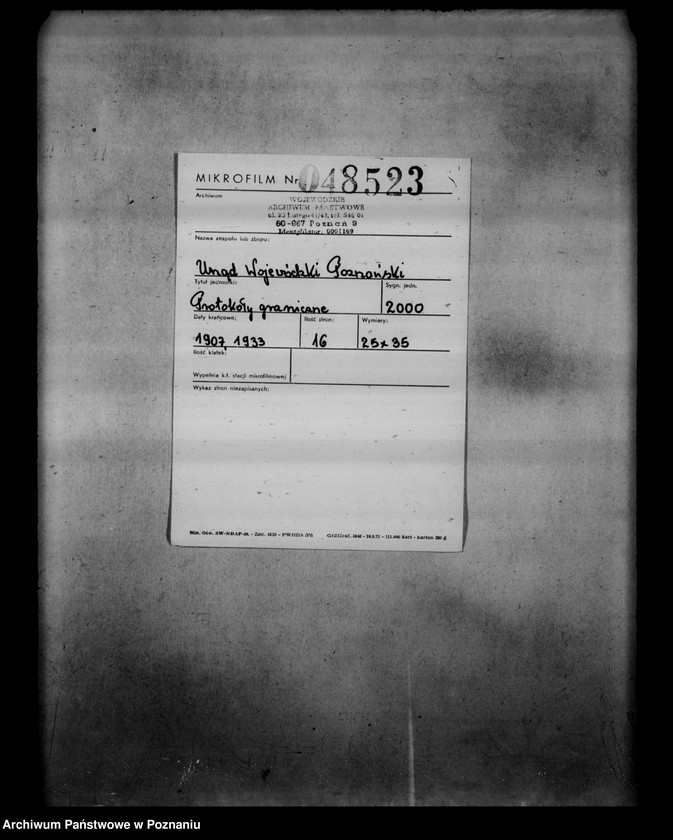 MIKROFILM Nr 048523
Archiwum
WOJEWÓDZKIE
ARCHIWUM PAŃSTWOWE
60-967 Poznań 9
Identyfikator: 0001169
Nazwa zespołu lub zbioru:
Urząd Wojewódzki Poznański
Tytuł jednostki: Sygn. jedn.
Protokóły graniczne 2000
Daty krańcowe: Ilość stron: Wymiary:
1907, 1933 16 25x35
Ilość klatek:
Wypełnia k.t. stacji mikrofilmowej
Wykaz stron niezapisanych:
Archiwum Państwowe w Poznaniu